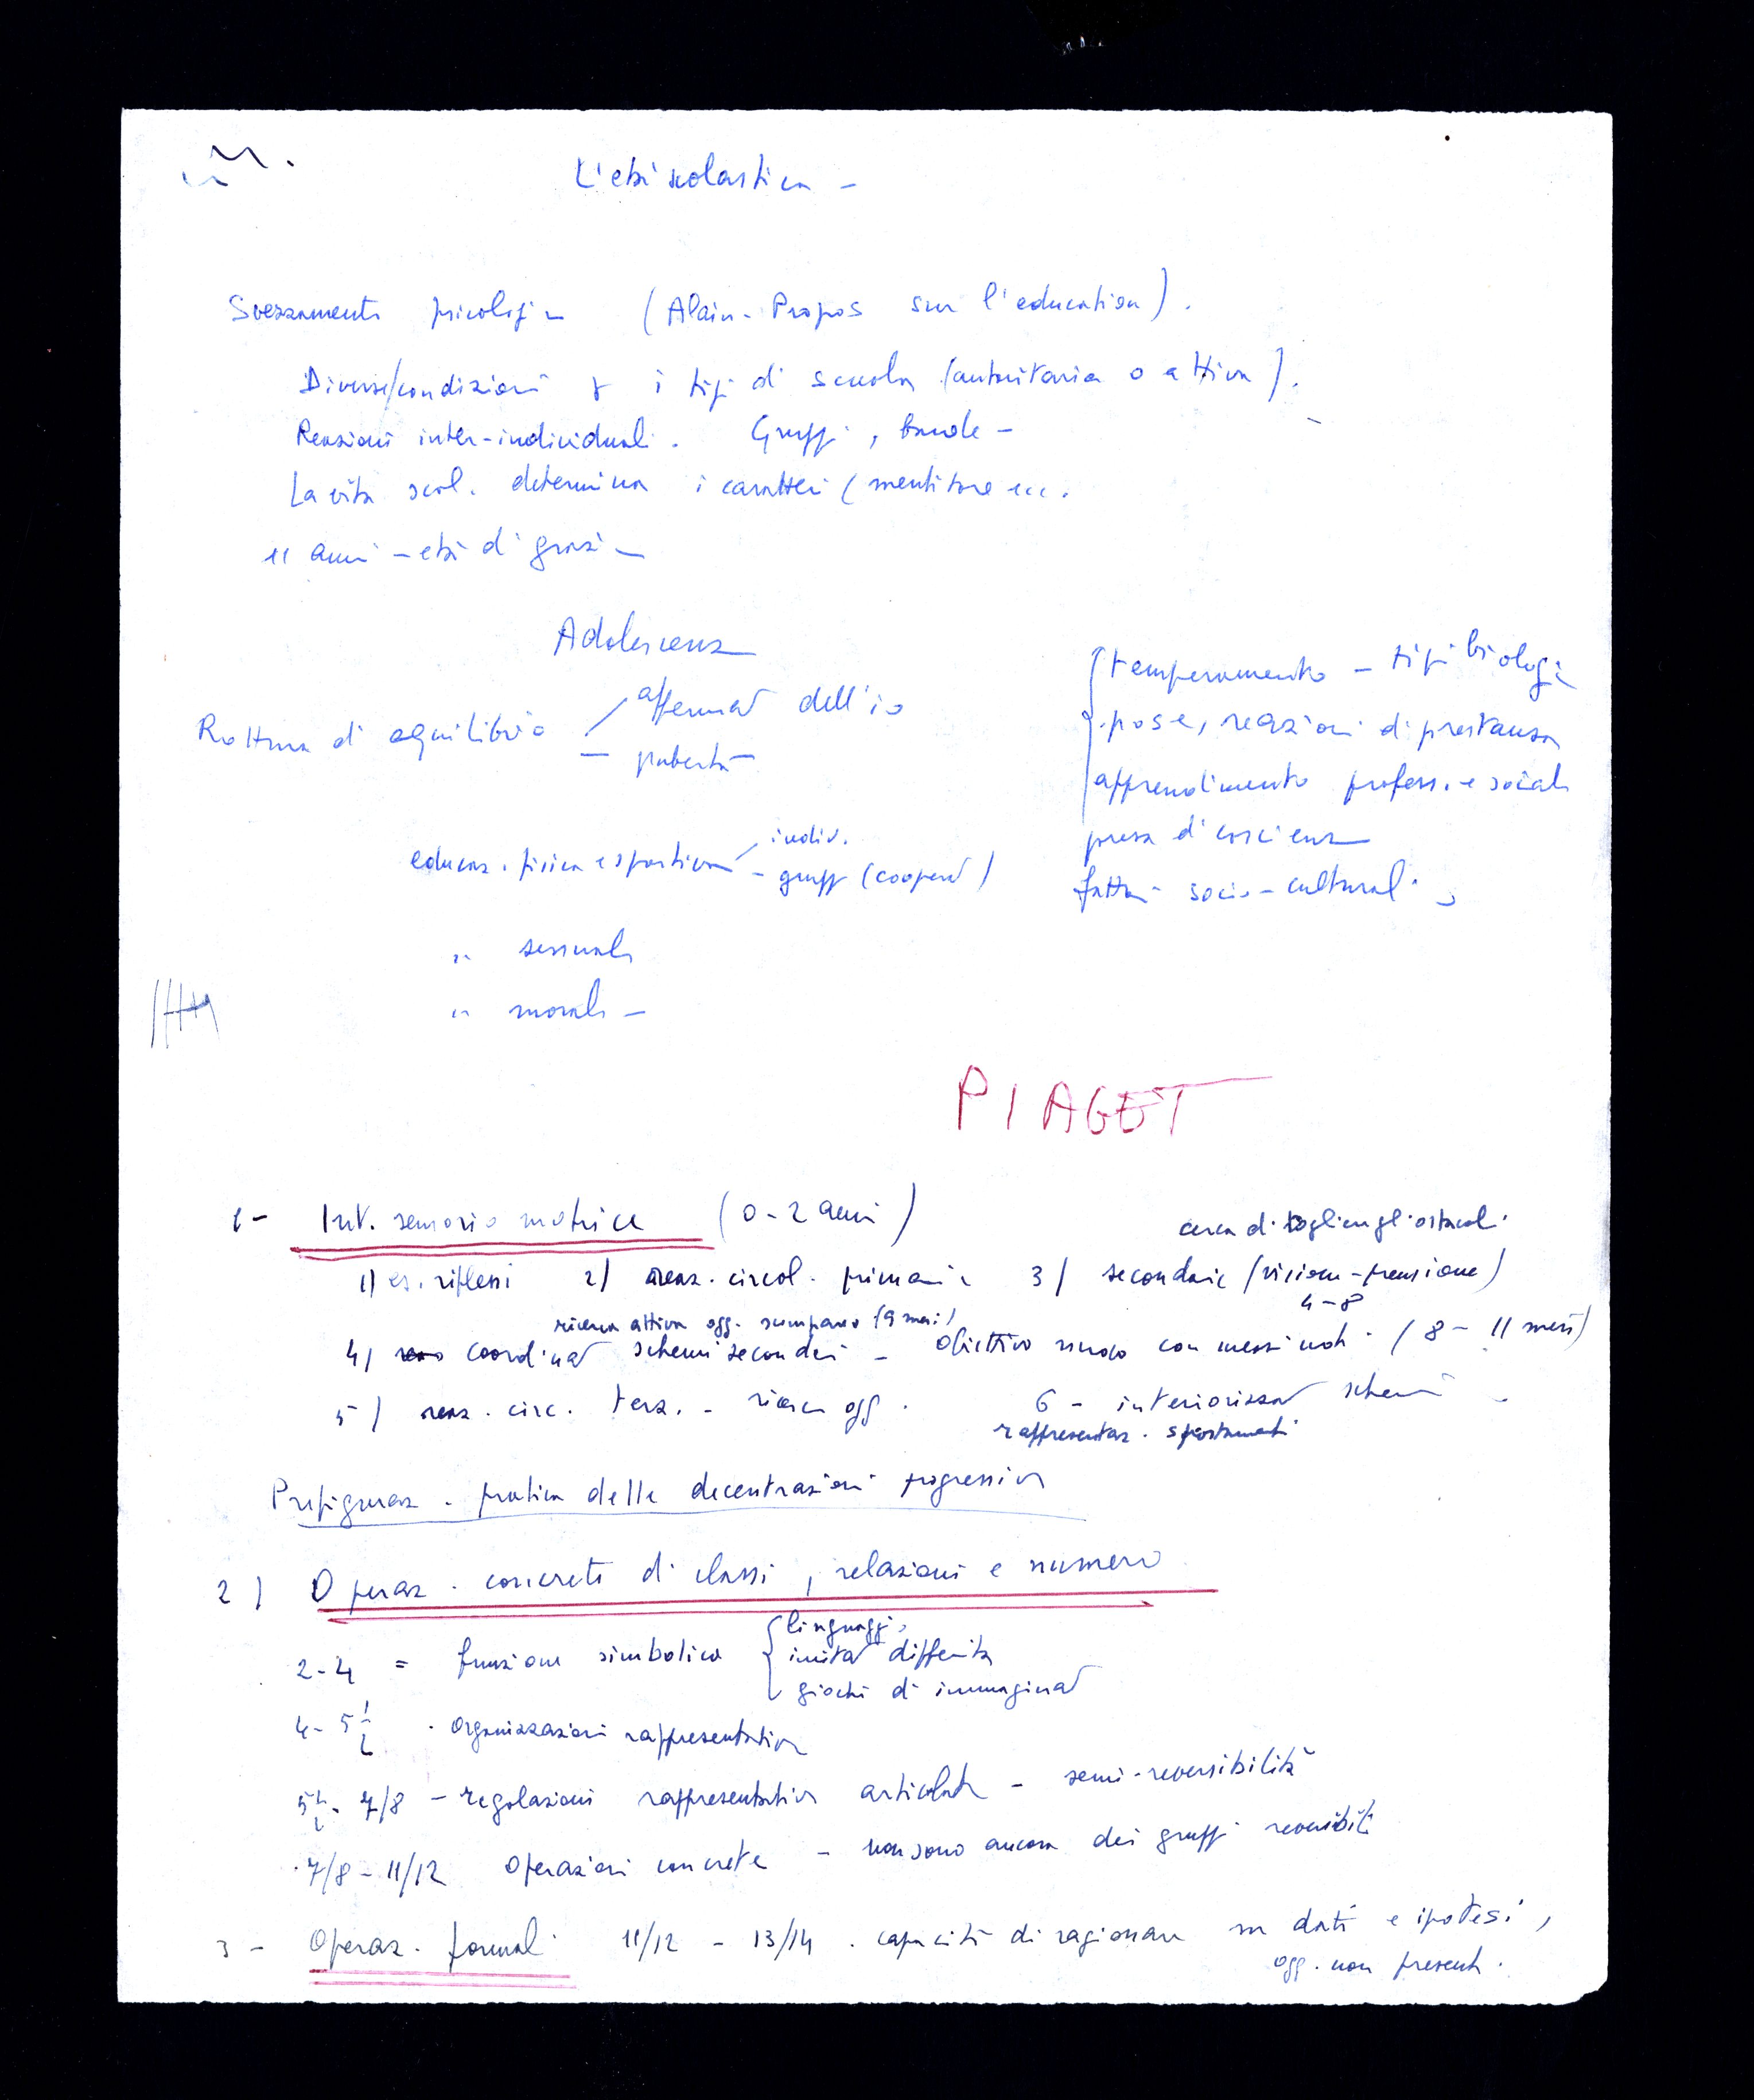 L'età scolastica -
Svezzamento psicologico (Alain - Propos sur l'education).
Diverse condizioni x i tipi di scuola (autoritaria o attiva).
Reazioni inter-individuali. Gruppi, bande -
La vita scol. determina i caratteri (mentitore ecc.
11 anni - età di grazia
Adolescenza
Rottura di equilibrio
affermaz dell'io
- pubertà
temperamento - tipi biologici
pose, reazioni di prestanza
apprendimento profess. e sociale
presa di coscienza
fattori socio-culturali
educaz. fisica e sportiva
indiv.
- gruppi (cooperaz)
" sessuale
" morale -
PIAGET
1- Int. sensorio motrice (0-2 anni)
cerca di togliere gli ostacoli
1) es. riflessi 2) reaz. circol. primarie 3) secondarie (visione-prensione)
4-8
ricerca attiva ogg. scomparso (9 mesi)
4) coordinaz schemi secondari - obiettivo nuovo con mezzi noti (8 - 11 mesi)
5) reaz. circ. terz. - ricerca ogg. 6 - interiorizzaz schemi -
rappresentaz. spostamenti
Prefiguraz. pratica delle decentrazioni progressive
2) Operaz. concrete di classi, relazioni e numero
2-4 = funzione simbolica
linguaggio
imitaz differita
giochi di immaginaz
4-5 1/2 . organizzazioni rappresentative
5 1/2 - 7/8 - regolazioni rappresentative articolate - semi-reversibilità
7/8 - 11/12 operazioni concrete - non sono ancora dei gruppi reversibili
3 - Operaz. formali 11/12 - 13/14 . capacità di ragionare su dati e ipotesi,
ogg. non presenti.